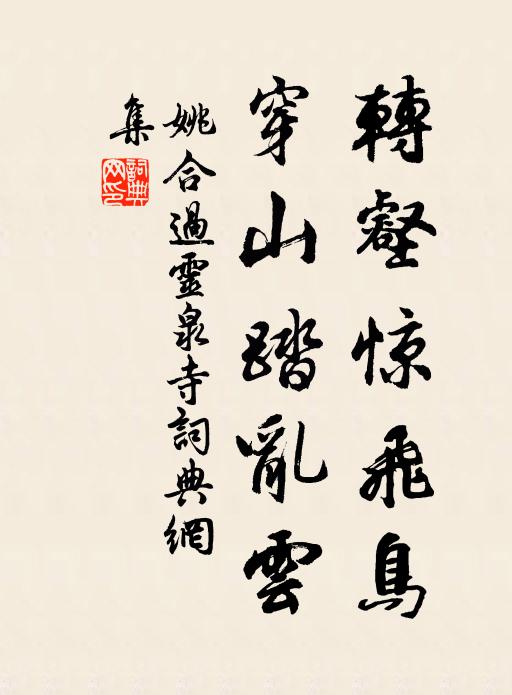 轉壑惊飛鳥
穿山踏亂雲
姚合過靈泉寺詞典網
集
詞典網印